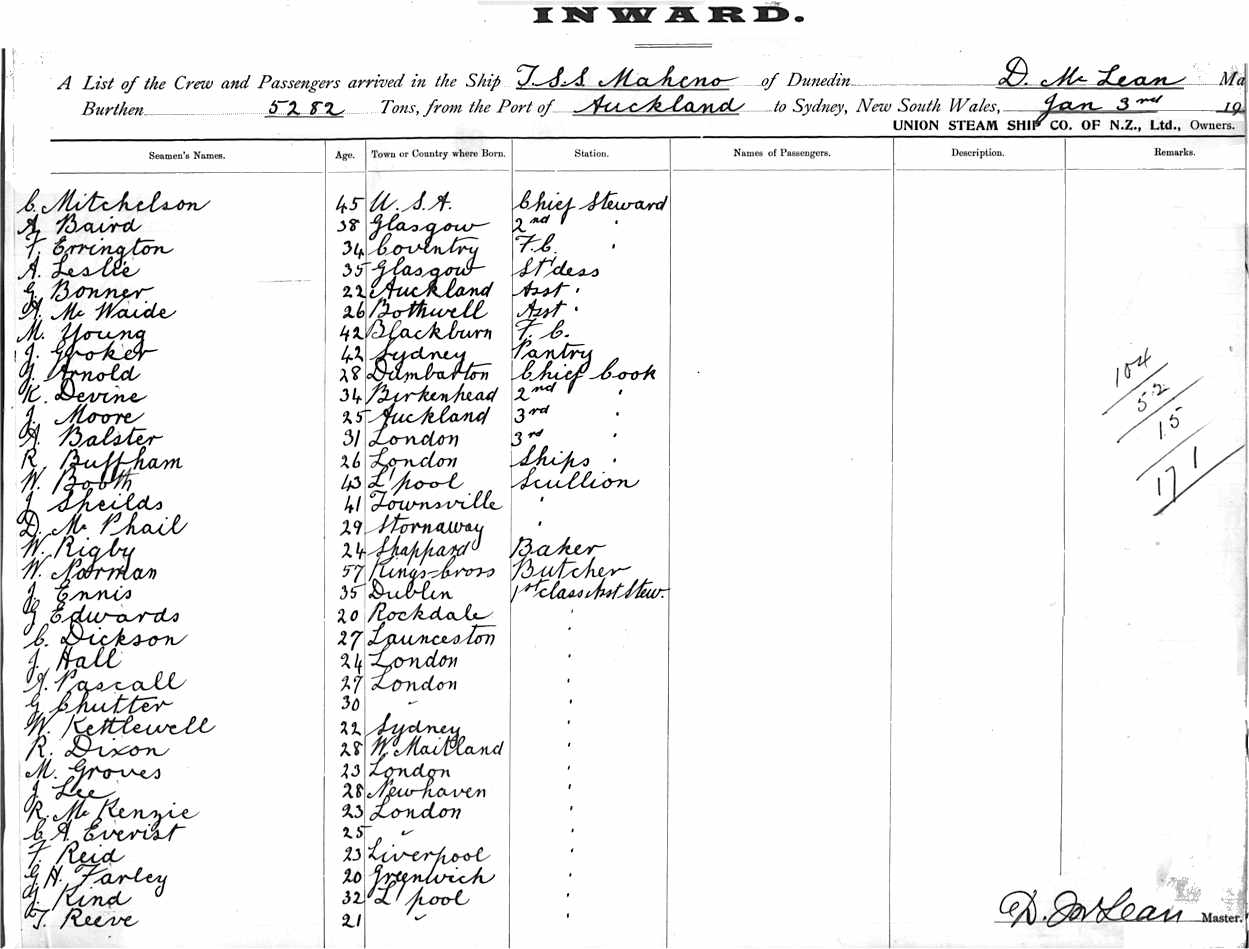 INWARD.
A List of the Crew and Passengers arrived in the Ship T.S.S Maheno of Dunedin D. Mc Lean Ma
Burthen 5282 Tons, from the Port of Auckland to Sydney, New South Wales, Jan 3rd 19
UNION STEAM SHIP CO. OF N.Z., Ltd., Owners.
Seamen's Names. Age. Town or Country where Born. Station. Names of Passengers. Description. Remarks.
C. Mitchelson 45 U.S.A. Chief Steward
A. Baird 38 Glasgow 2nd "
F. Errington 34 Coventry F.C. "
A. Leslie 35 Glasgow St'dess
G. Bonner 22 Auckland Asst "
A. Mc Waide 26 Bothwell Asst "
M. Young 42 Blackburn F.C.
J. Groker 42 Sydney Pantry
J. Arnold 28 Dumbarton Chief Cook
K. Devine 34 Birkenhead 2nd "
J. Moore 25 Auckland 3rd "
A. Balster 31 London 3rd "
R. Buffham 26 London Ships "
W. Booth 43 L'pool Scullion
J. Sheilds 41 Townsville "
D. Mc Phail 29 Stornaway "
W. Rigby 24 Shappard Baker
W. Norman 57 Kings-Cross Butcher
J. Ennis 35 Dublin 1st class Asst Stew.
G Edwards 20 Rockdale "
C. Dickson 27 Launceston "
J. Hall 24 London "
A. Pascall 27 London "
G Chutter 30 " "
W. Kettlewell 22 Sydney "
R. Dixon 28 W. Maitland "
M. Groves 23 London "
J. Lee 28 Newhaven "
R. Mc Kenzie 23 London "
C. A. Everist 25 " "
F. Reid 23 Liverpool "
G H. Farley 20 Greenwich "
J. Kind 32 L'pool "
T. Reeve 21 " "
104
52
15
171
D. McLean Master.